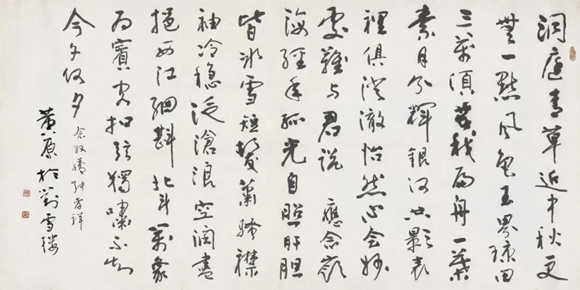 洞庭青草近中秋更
無一點風色玉界瓊田
三萬頃著我扁舟一葉
素月分輝銀河共影表
裡俱澄澈怡然心會妙
處難與君說 應念嶺
海經年孤光自照肝膽
皆冰雪短髮蕭騷襟
袖冷穩泛滄浪空闊盡
挹西江細斟北斗萬象
為賓客扣弦獨嘯不知
今夕何夕
念奴嬌 張孝祥
黃原於劉雪樓